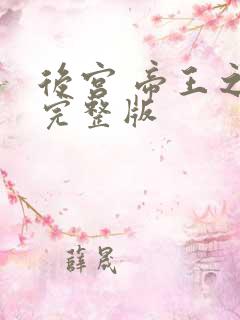 後宫 帝王之
完整版
薛晟